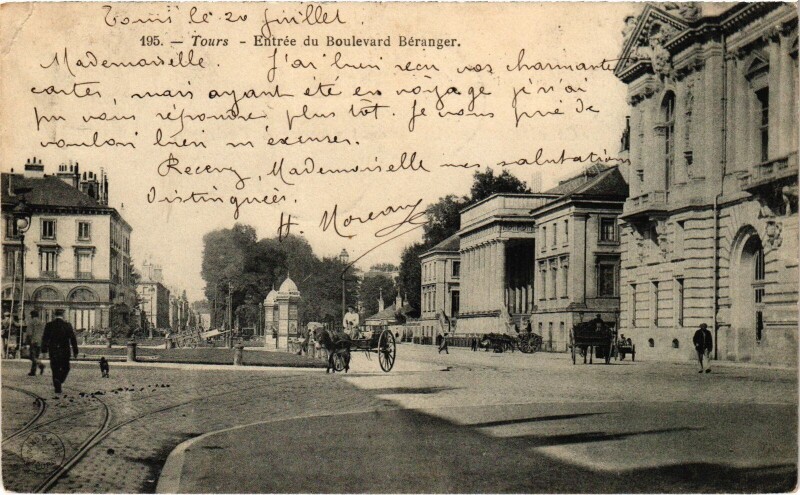 Tours le 20 juillet.
195. — Tours - Entrée du Boulevard Béranger.
Mademoiselle. J'ai bien reçu vos charmantes
cartes, mais ayant été en voyage je n'ai
pu vous répondre plus tôt. Je vous prie de
vouloir bien m'excuser.
Recevez, Mademoiselle mes salutations
distinguées.
H. Moreau